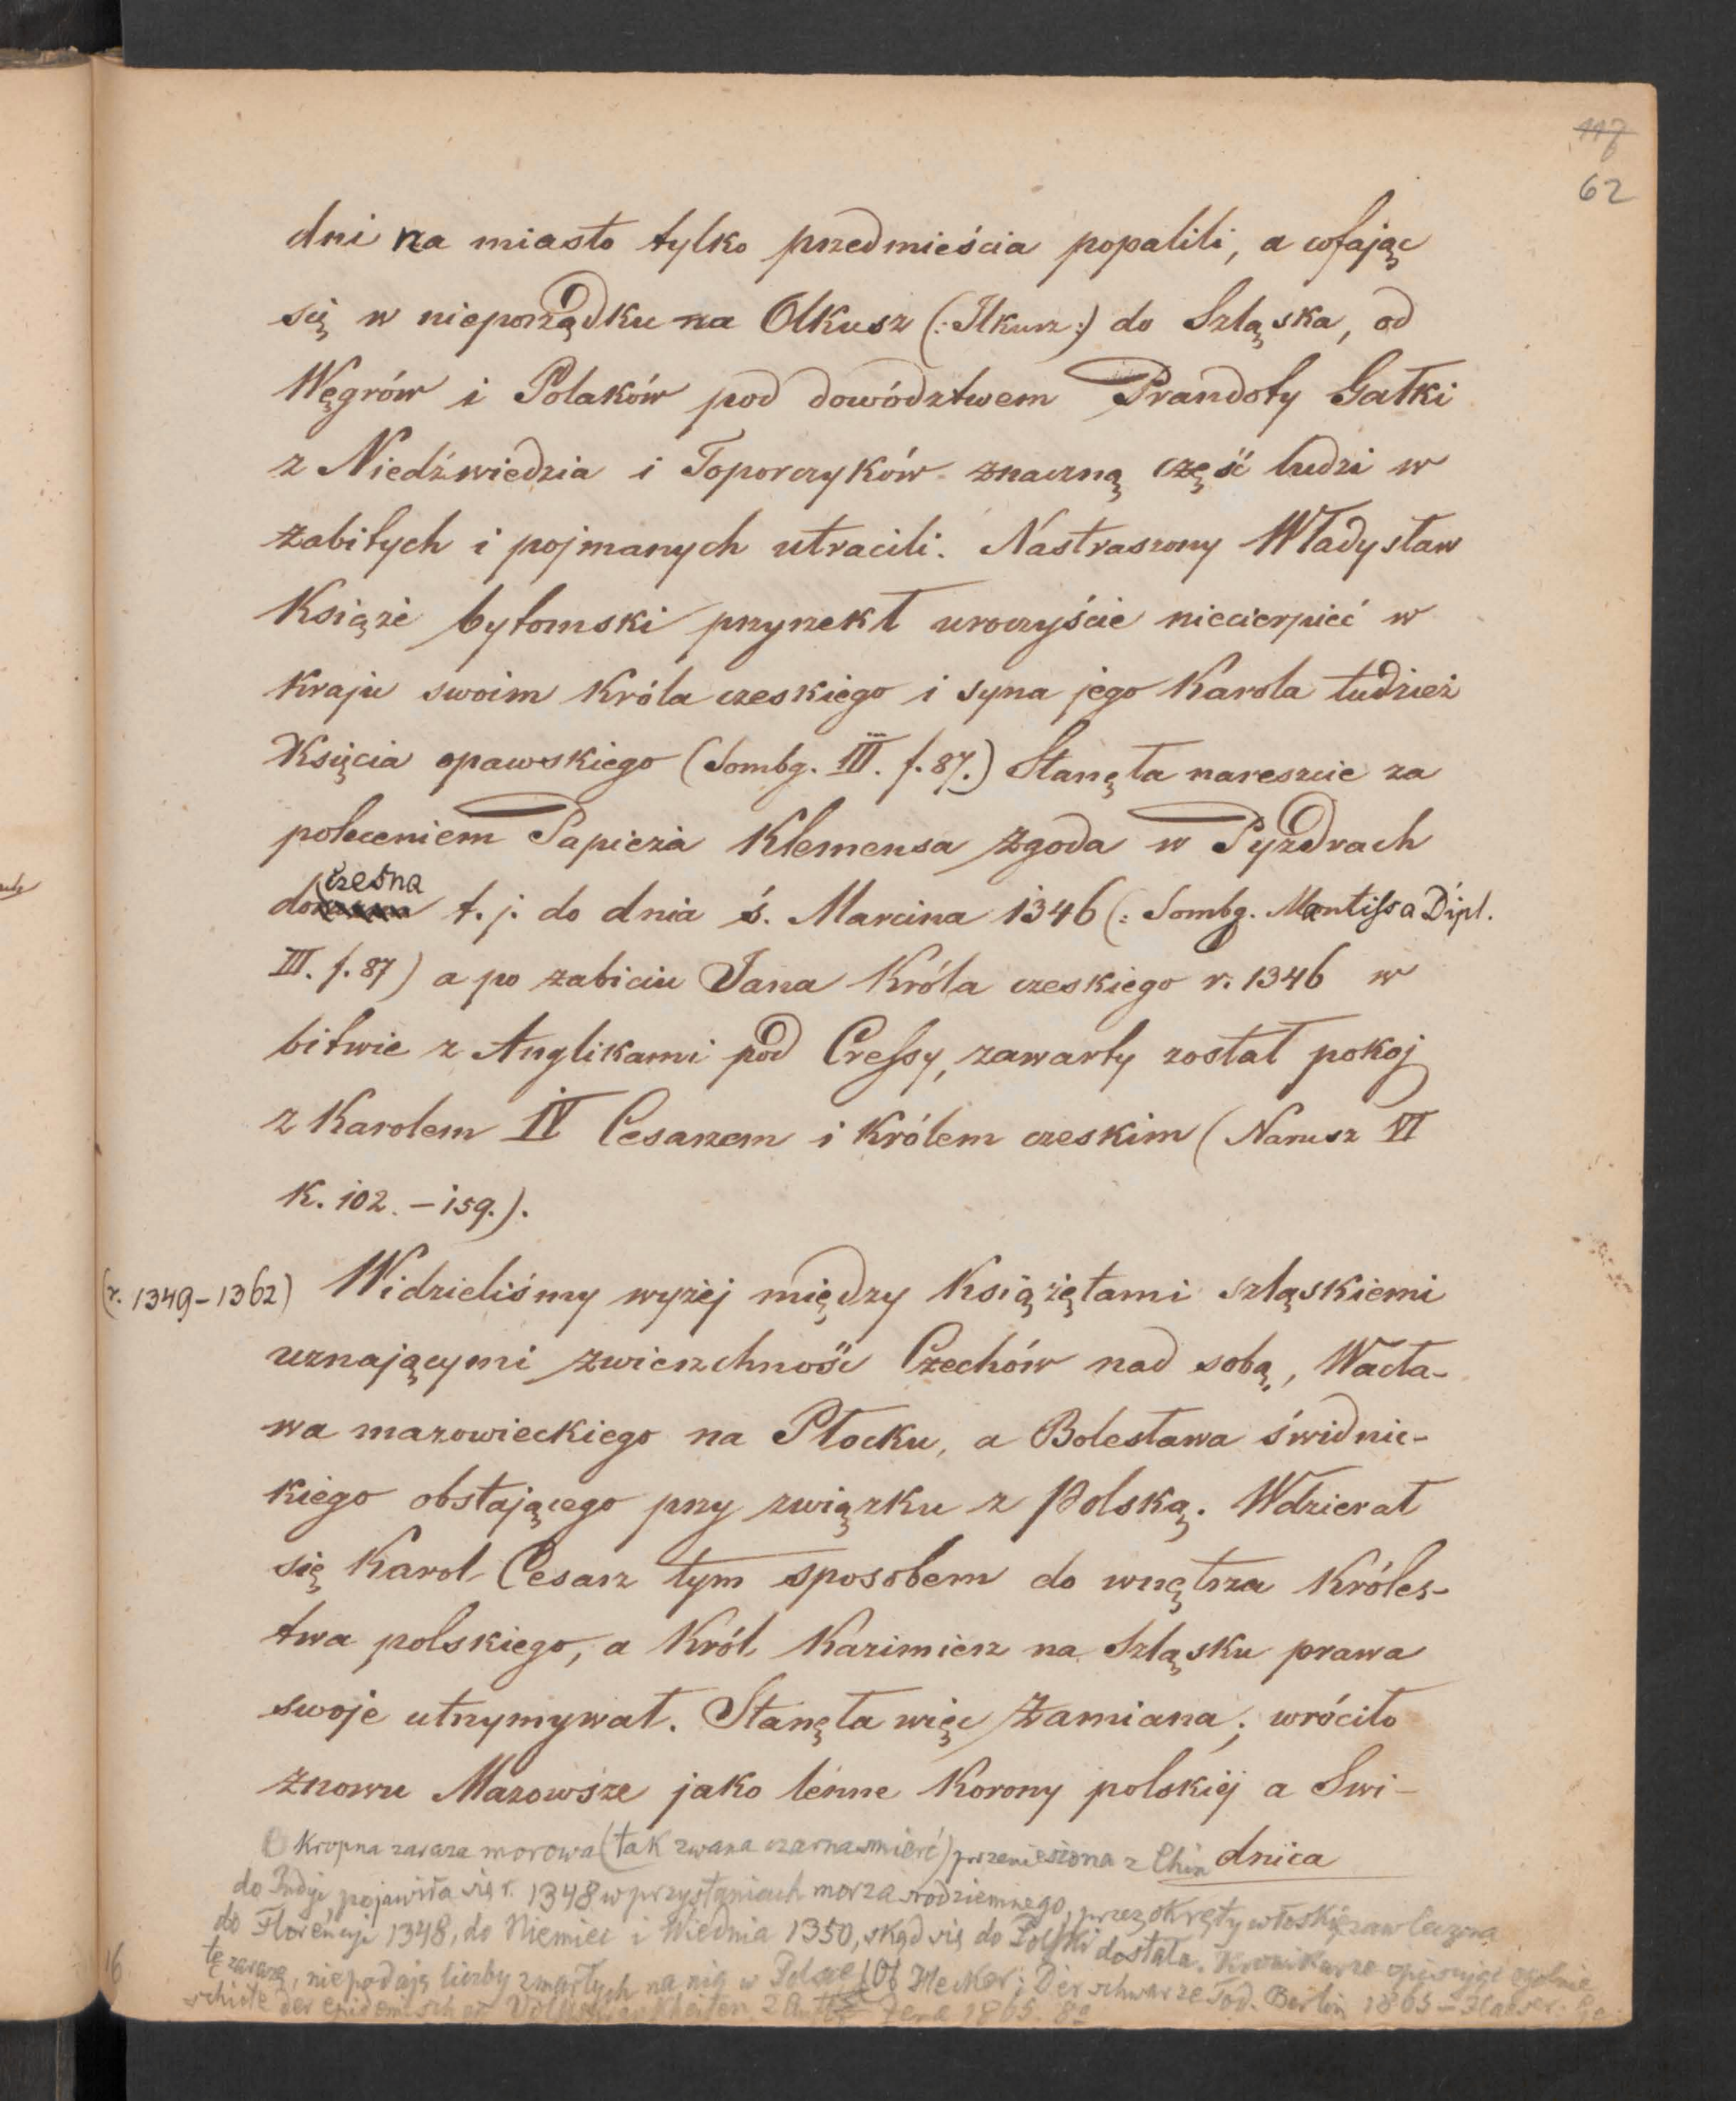 117
62
dni na miasto tylko przedmieścia popalili, a cofając
się w nieporządku na Olkusz (: Ilkusz :) do Szląska, od
Węgrów i Polaków pod dowództwem Prandoty Gałki
z Niedźwiedzia i Toporczyków znaczną część ludzi w
zabitych i pojmanych utracili. Nastraszony Władysław
Książe bytomski przyrzekł uroczyście niecierpieć w
kraju swoim Króla czeskiego i syna jego Karola tudzież
Księcia opawskiego (Sombg. III. f. 87.) Stanęła nareszcie za
poleceniem Papieża Klemensa zgoda w Pyzdrach
doczesna t. j. do dnia ś. Marcina 1346 (: Sombg. Mantissa Dipl.
III. f. 87) a po zabiciu Jana Króla czeskiego r. 1346 w
bitwie z Anglikami pod Cressy, zawarty został pokoj
z Karolem IV Cesarzem i Królem czeskim (Narusz VI
K. 102. – 159.).
(r. 1349 – 1362) Widzieliśmy wyżej między Książętami szląskiemi
uznającymi zwierzchność Czechów nad sobą, Wacła-
wa mazowieckiego na Płocku, a Bolesława świdnic-
kiego obstającego przy związku z Polską. Wdzierał
się Karol Cesarz tym sposobem do wnętrza Króles-
twa polskiego, a Król Kazimierz na Szląsku prawa
swoje utrzymywał. Stanęła więc zamiana; wróciło
znowu Mazowsze jako lenne Korony polskiéj a Swi-
dnica
Okropna zaraza morowa (tak zwana czarna śmierć) przeniesiona z Chin
do Indyi, pojawiła się r. 1348 w przystaniach morza srodziemnego, przez okręty włoskie zawleczona
do Florencyi 1348, do Niemiec i Wiednia 1350, skąd się do Polski dostała. Kronikarze opisując ogolnie
tę zarazę, niepodają liczby zmarłych na nią w Polsce Hecker: Der schwarze Tod. Berlin 1865 – Haeser: Ge
schichte der epidemischen Volkskrankheiten 2 Jena 1865. 8º
16